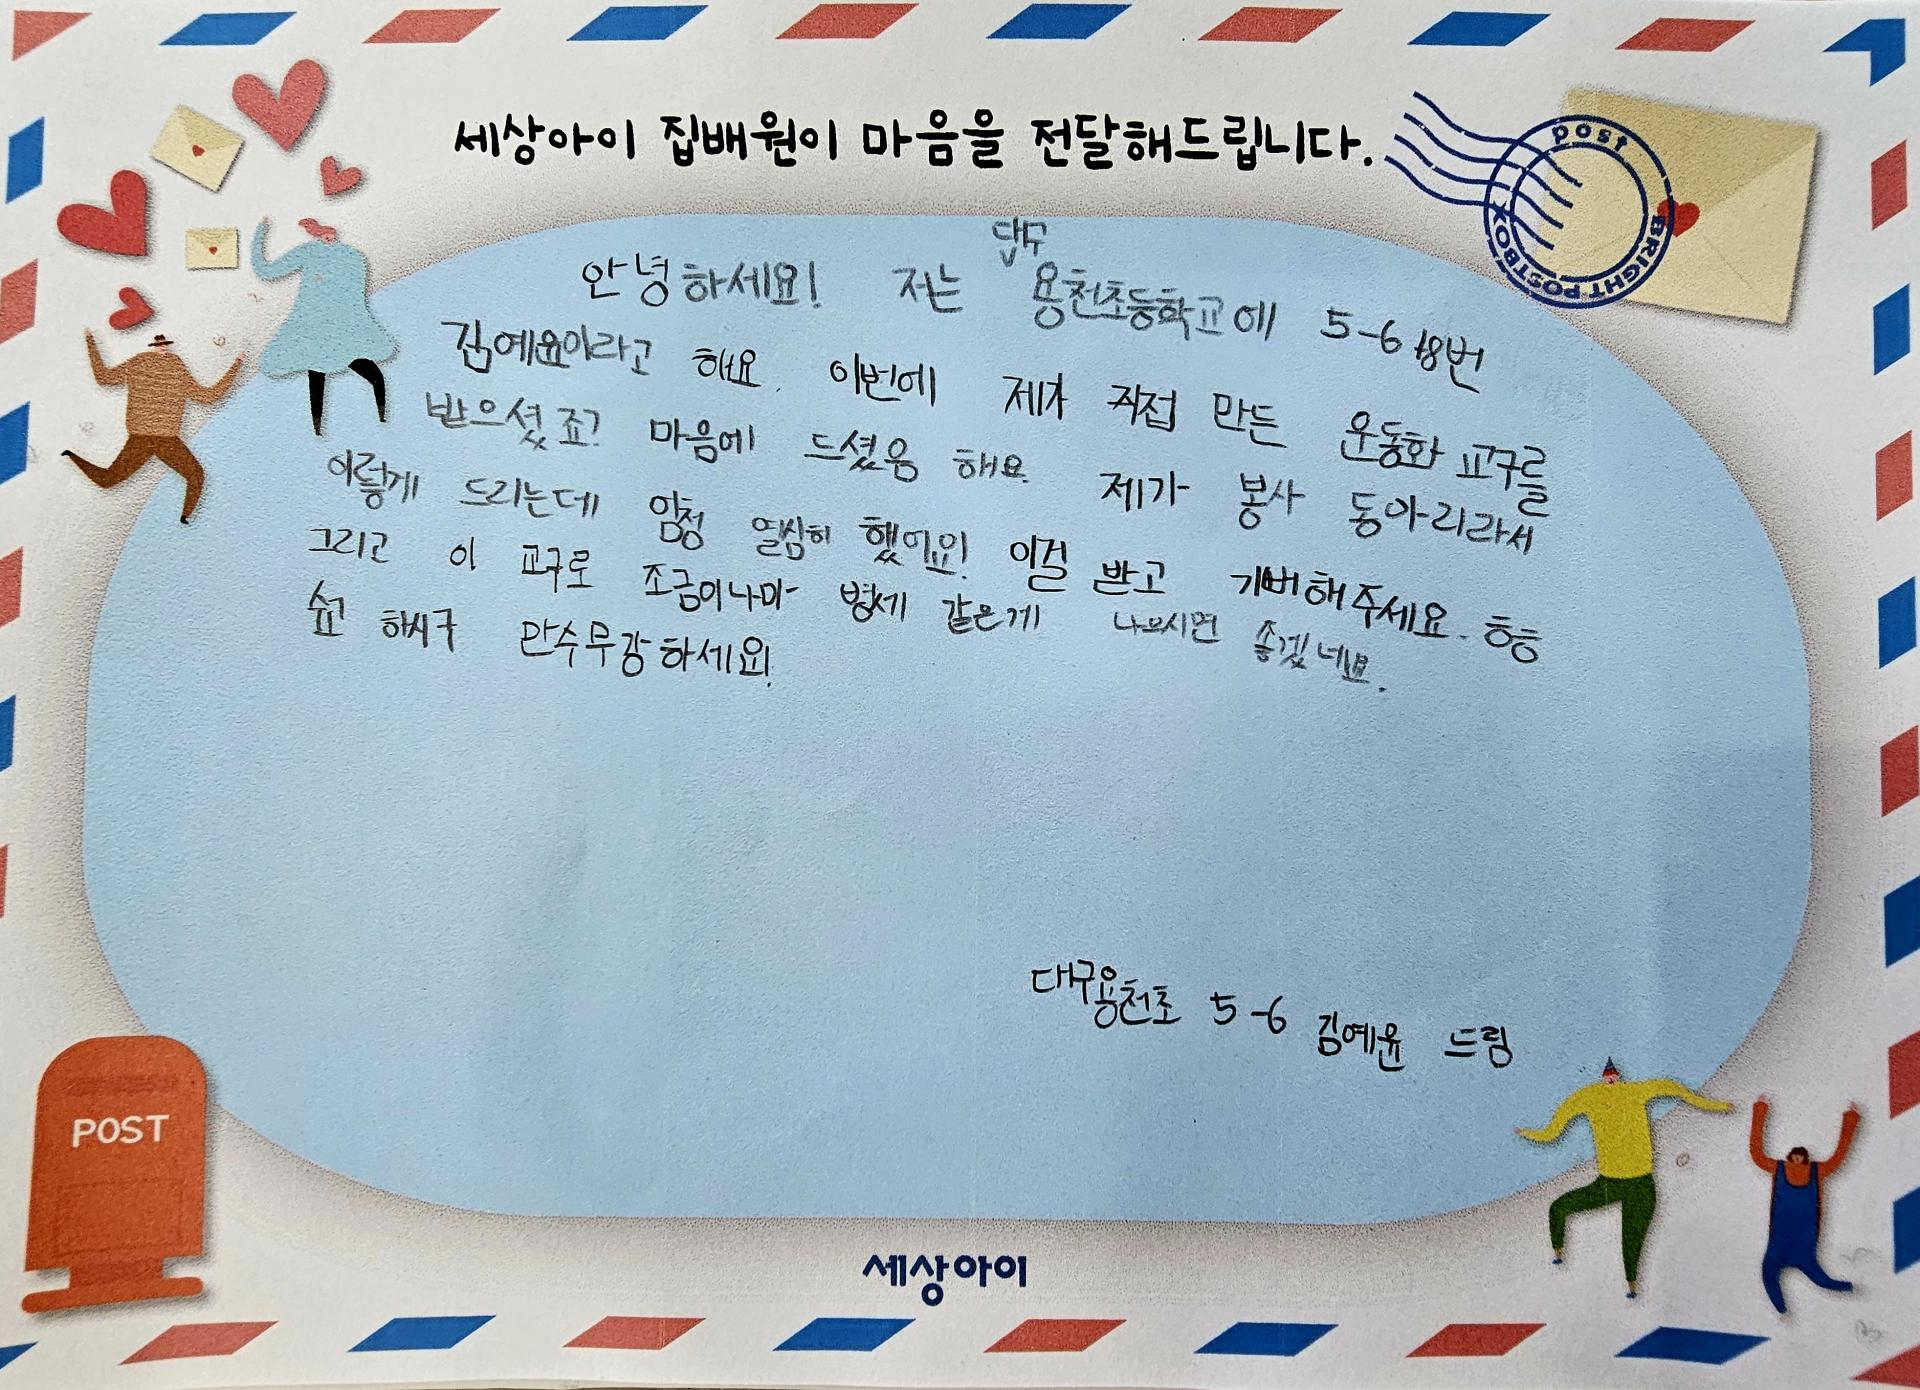 세상아이 집배원이 마음을 전달해드립니다.
post
BRIGHT POSTBOX
안녕하세요! 저는 용천초등학교에 5-6 18번
김예윤이라고 해요. 이번에 제가 직접 만든 운동화 교구를
받으셨죠? 마음에 드셨음 해요. 제가 봉사 동아리라서
이렇게 드리는데 엄청 열심히 했어요! 이걸 받고 기뻐해주세요. ㅎㅎ
그리고 이 교구로 조금이나마 병세 같은게 나으시면 좋겠네요.
숲고 하시구 만수무강하세요!
대구용천초 5-6 김예윤 드림
POST
세상아이